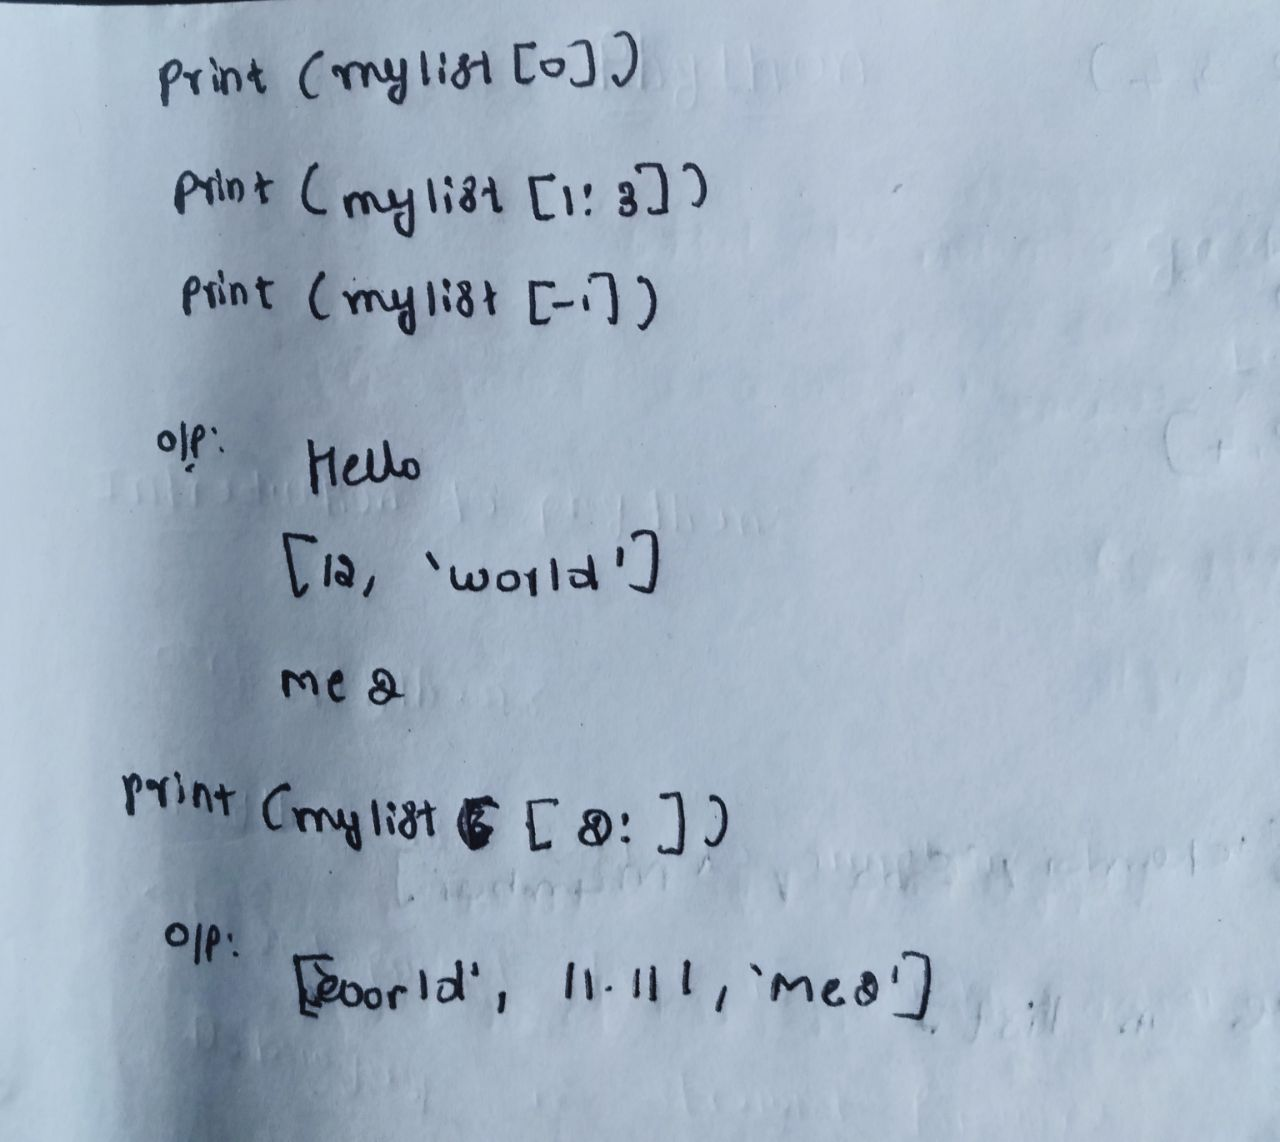 print (mylist [0])
print (mylist [1:3])
print (mylist [-1])
o/p:
Hello
[12, 'world']
me 2
print (mylist [2:])
o/p:
['world', 11.111, 'me2']